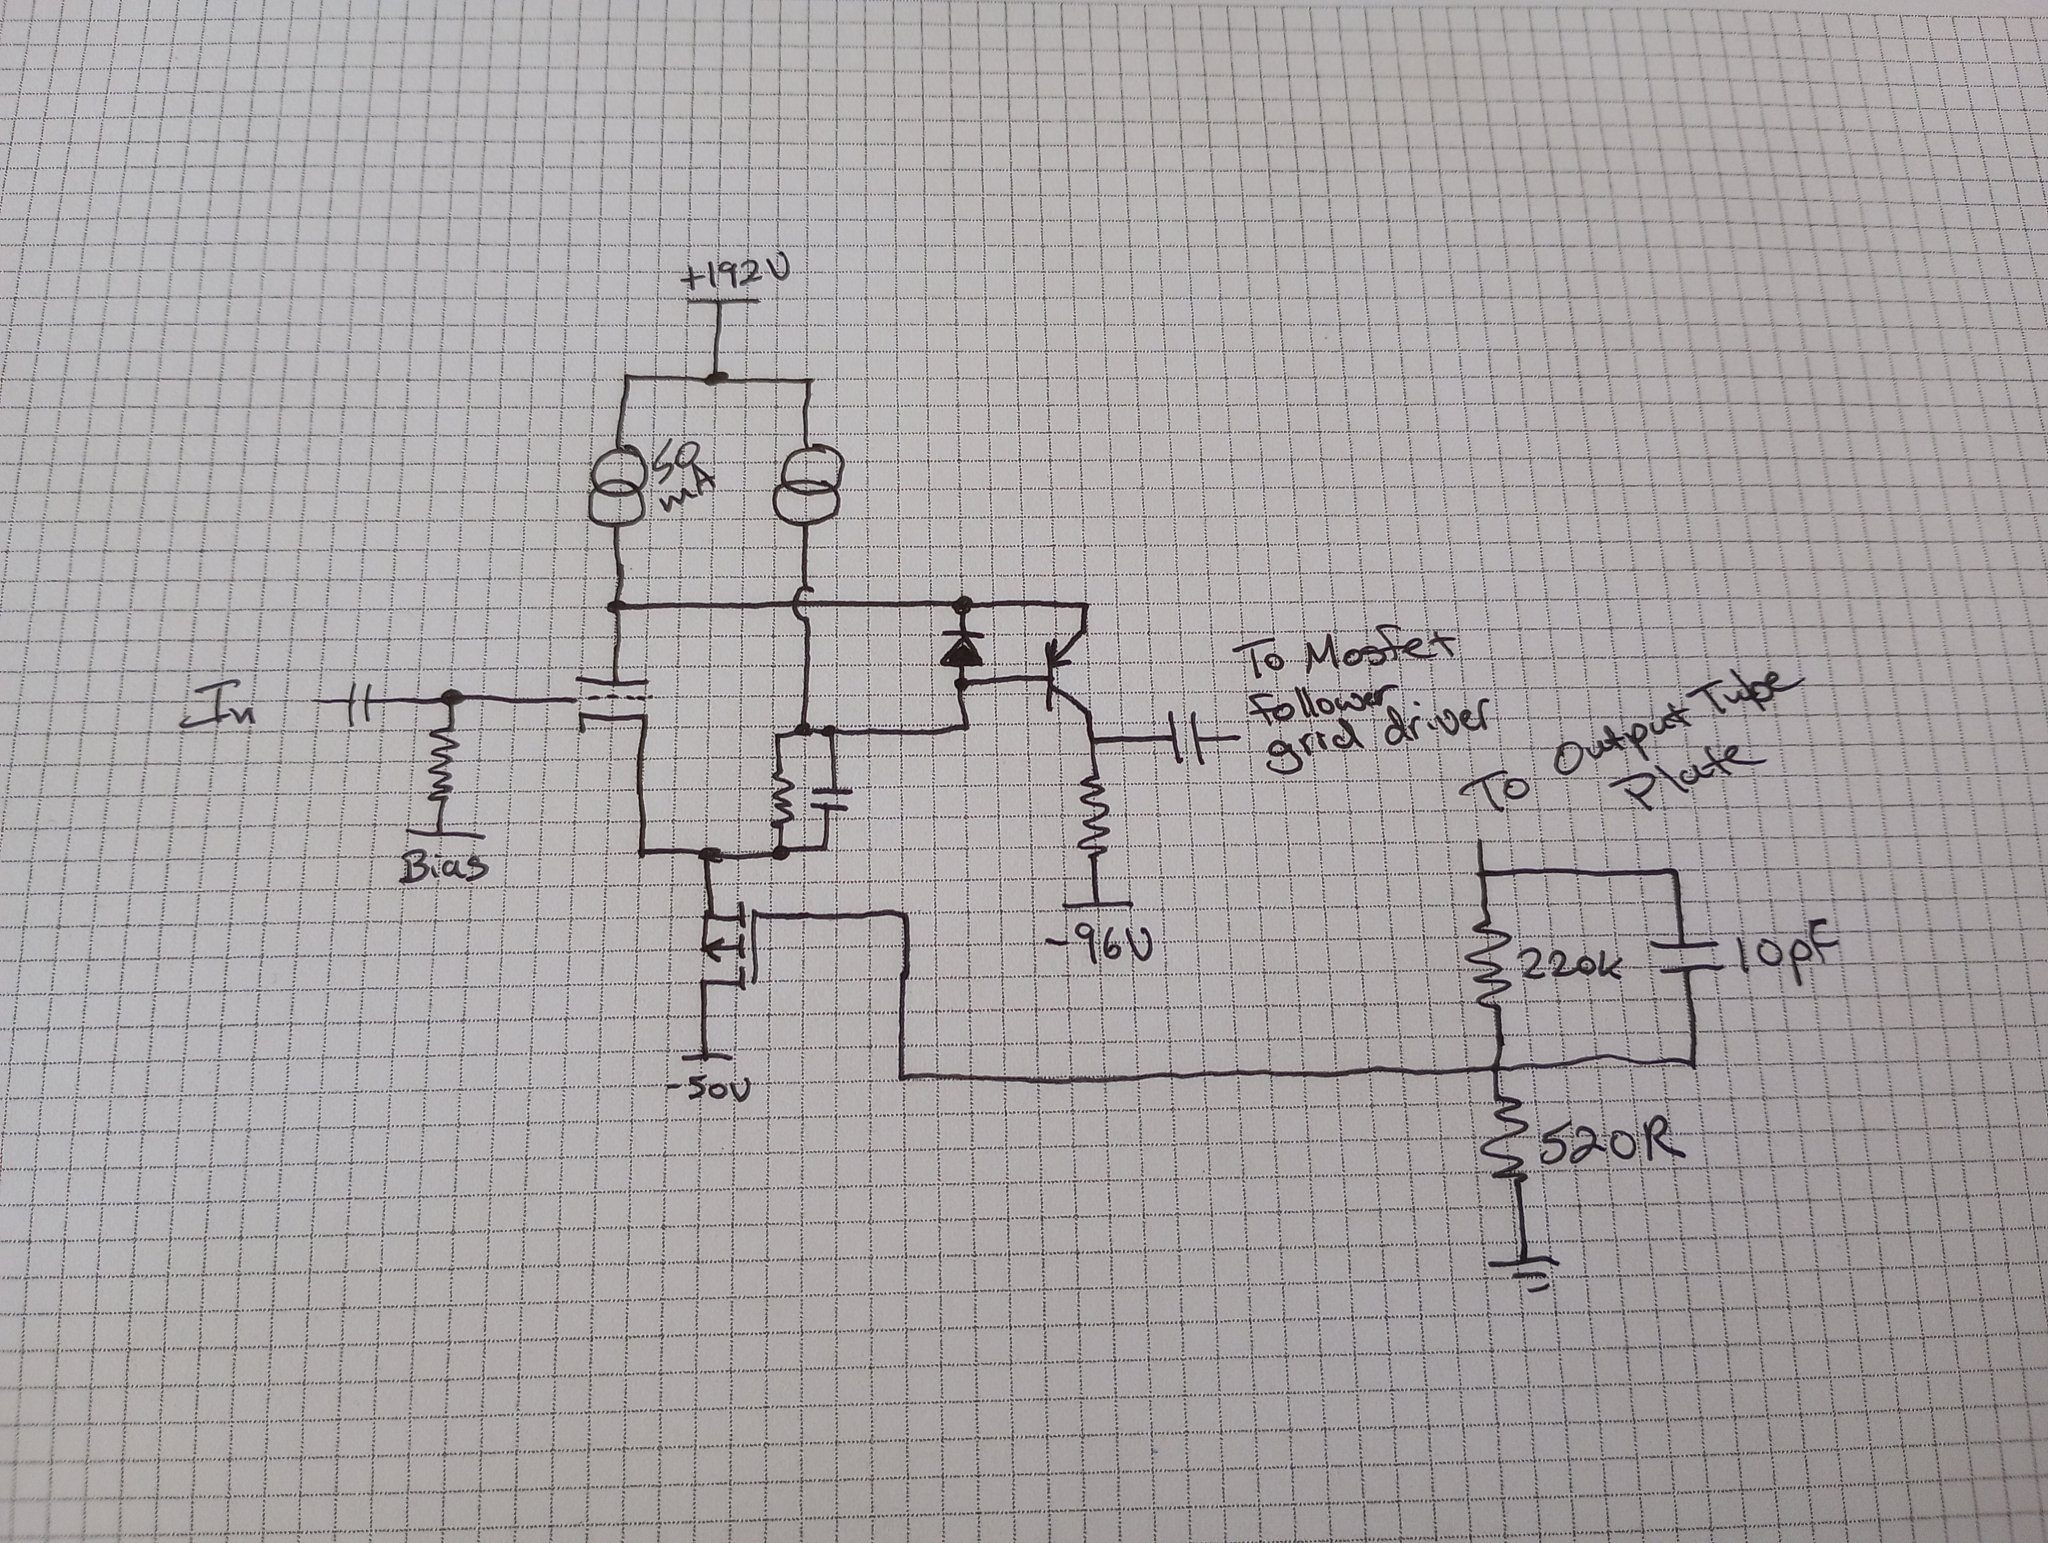 +192V
50
mA
In
Bias
To Mosfet
follower
grid driver
To Output Tube
Plate
-96V
220k
10pF
-50V
520R